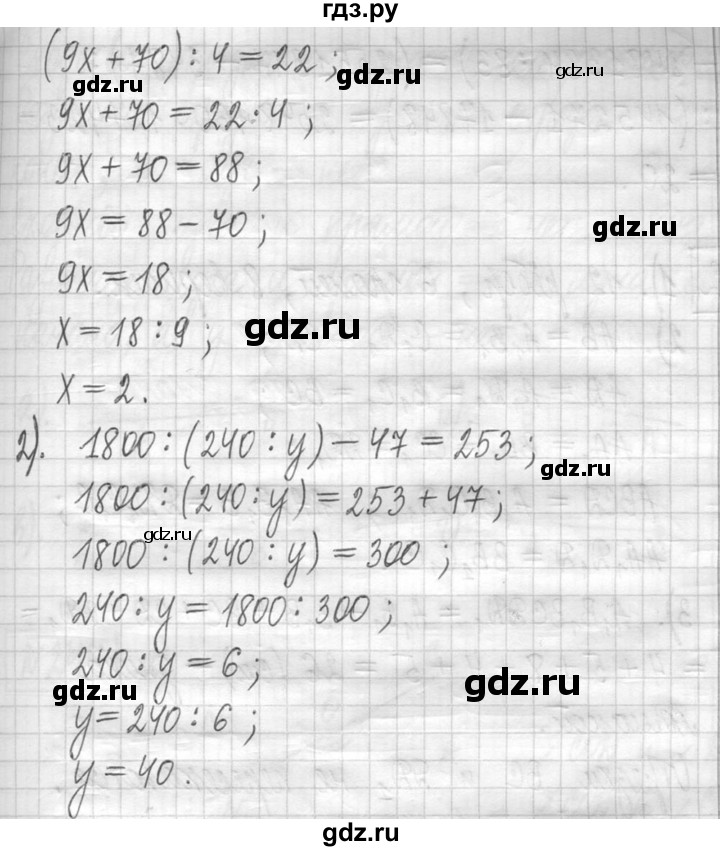 гдз.ру
(9x + 70) : 4 = 22 ;
gdz.ru
gdz.ru
9x + 70 = 22 · 4 ;
9x + 70 = 88 ;
9x = 88 - 70 ;
gdz.ru
9x = 18 ;
x = 18 : 9 ;
gdz.ru
x = 2 .
2). 1800 : (240 : y) - 47 = 253 ;
gdz.ru
1800 : (240 : y) = 253 + 47 ;
gdz.ru
1800 : (240 : y) = 300 ;
240 : y = 1800 : 300 ;
240 : y = 6 ;
gdz.ru
gdz.ru
y = 240 : 6 ;
y = 40 .
gdz.ru